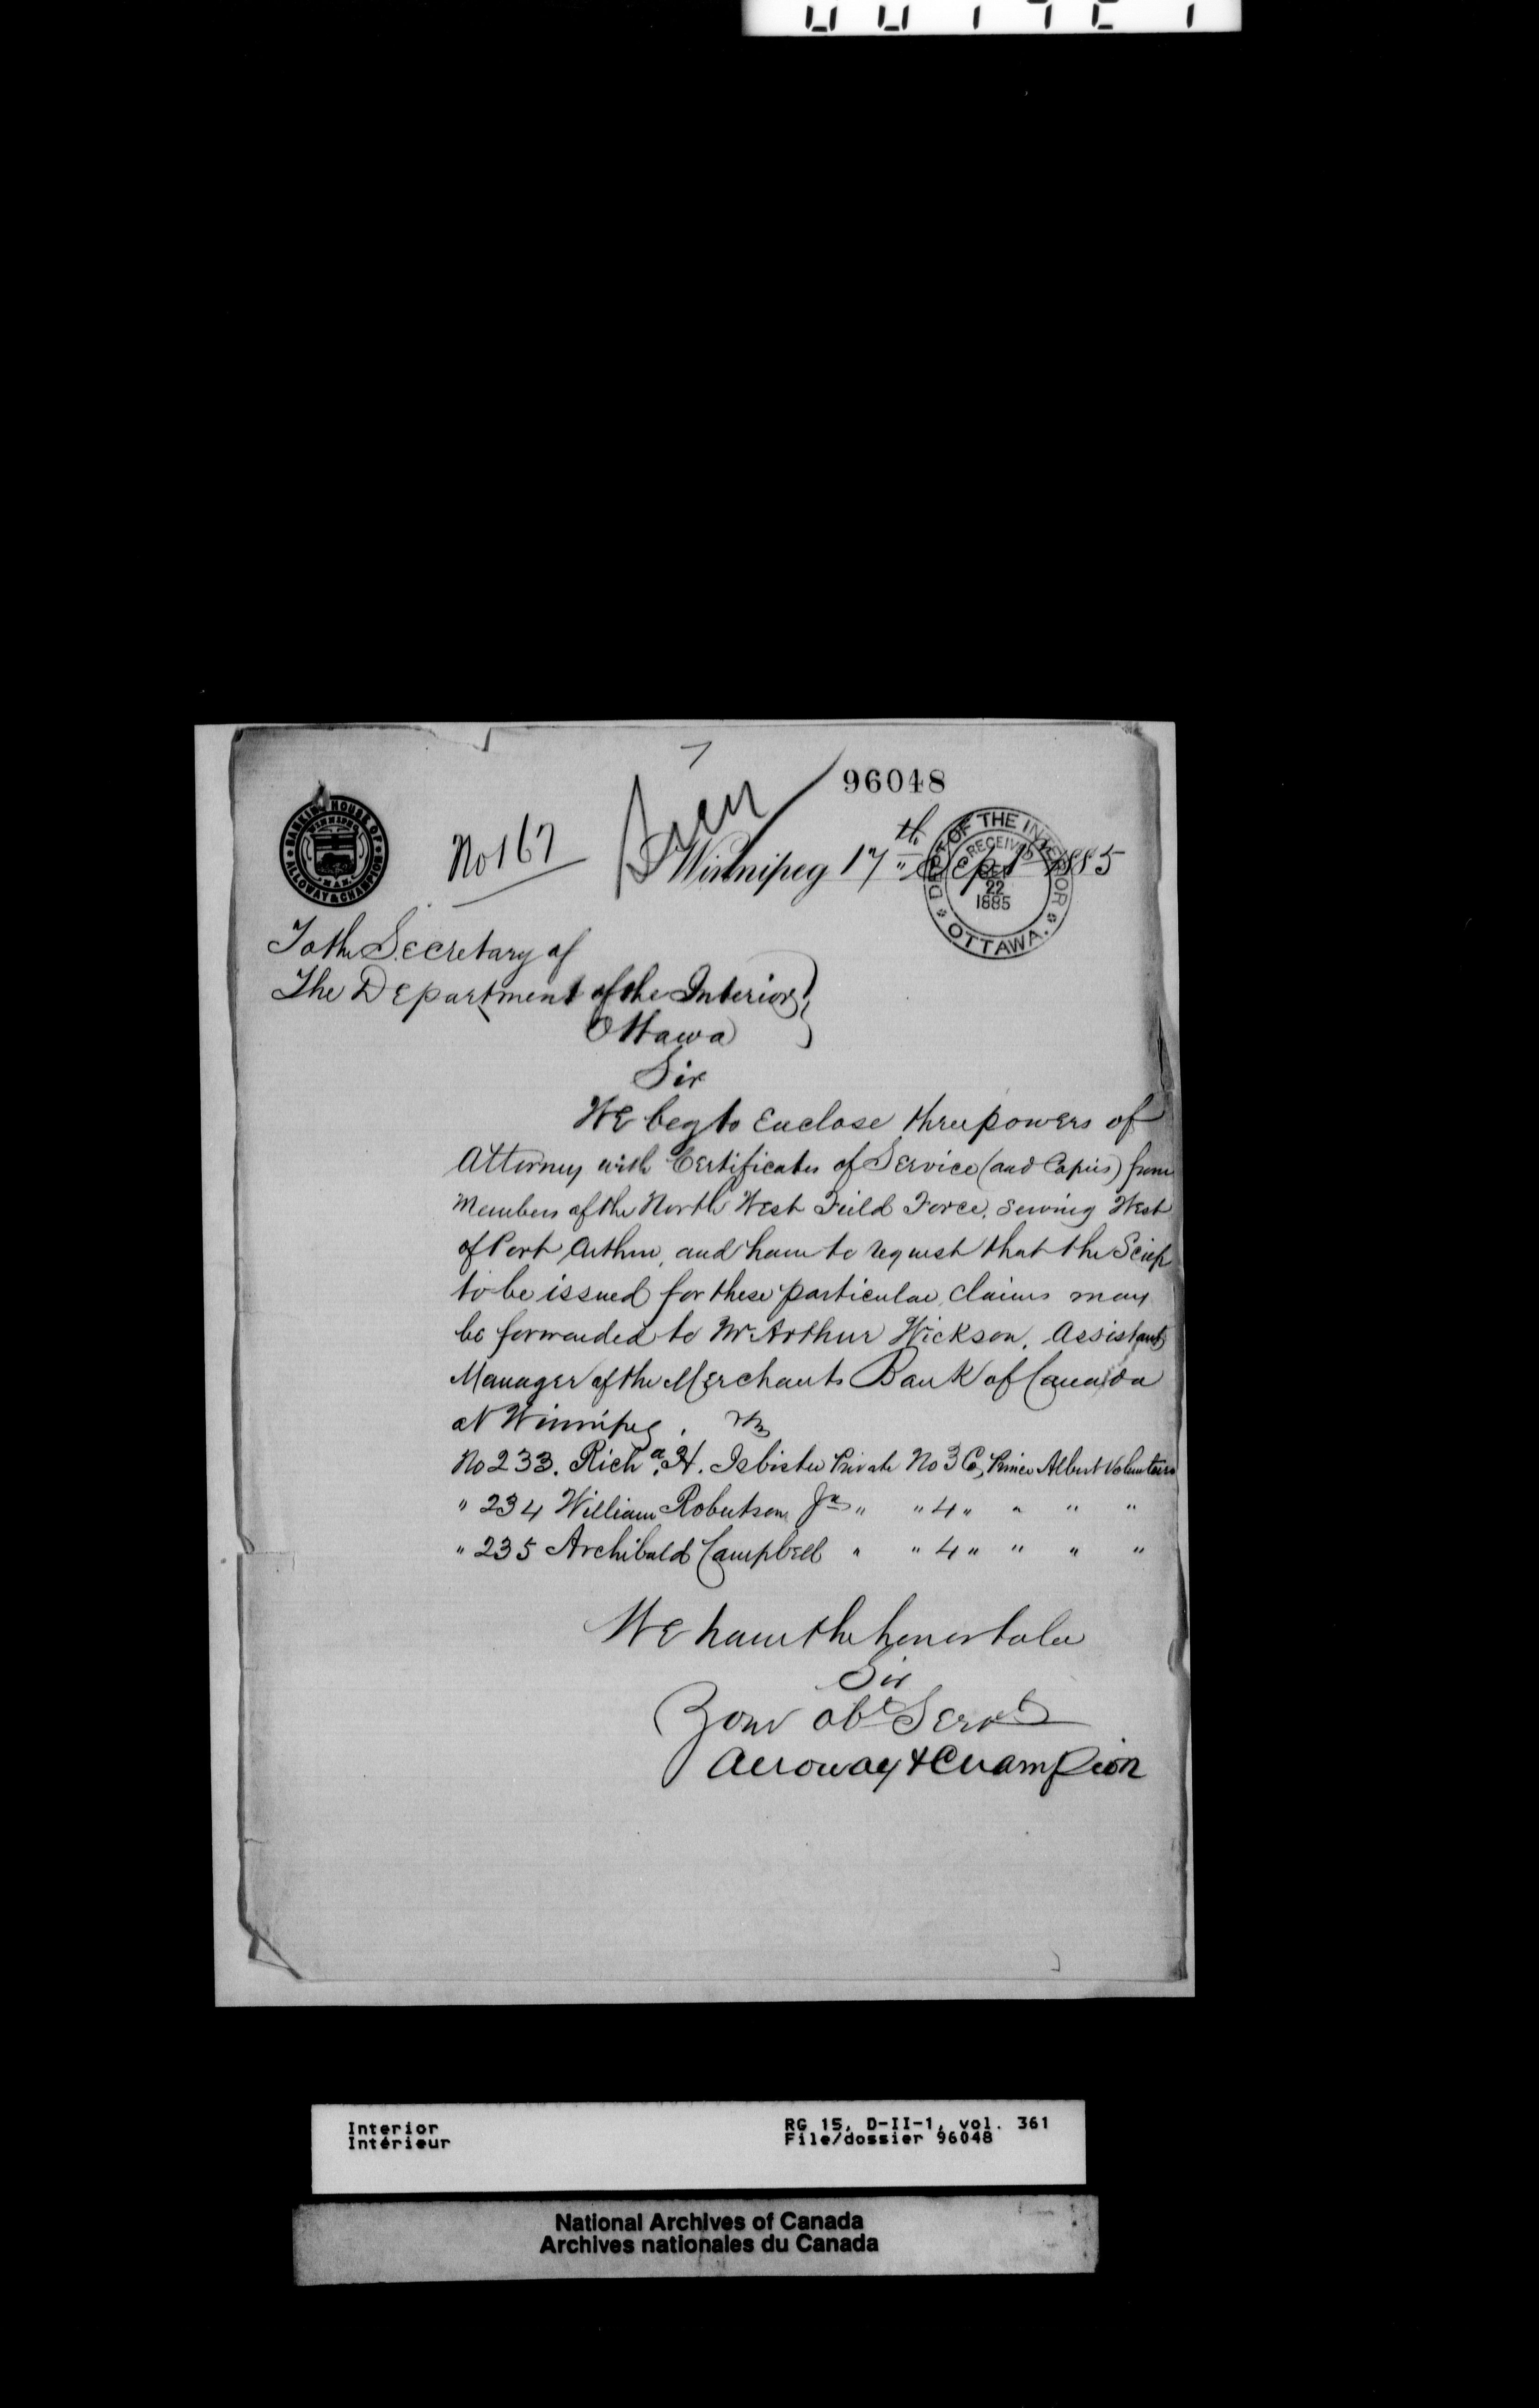 96048
BANKING HOUSE OF
WINNIPEG
MAN.
ALLOWAY & CHAMPION
No 167
Winnipeg 17th Sept 1885
DEPT OF THE INTERIOR
RECEIVED
22
1885
OTTAWA.
To the Secretary of
The Department of the Interior
Ottawa
Sir
We beg to Enclose three powers of
Attorney with Certificates of Service (and Copies) from
Members of the North West Field Force, serving West
of Port Arthur, and have to request that the Scrip
to be issued for these particular claims may
be forwarded to Mr Arthur Wickson, Assistant
Manager of the Merchants Bank of Canada
at Winnipeg.
No 233. Richd. H. Isbister Private No 3 Co, Prince Albert Volunteers
" 234 William Robertson Jr " " 4 " " " "
" 235 Archibald Campbell " " 4 " " " "
We have the honor to be
Sir
Your obt Servts
Alloway & Champion
Interior
Intérieur
RG 15, D-II-1, vol. 361
File/dossier 96048
National Archives of Canada
Archives nationales du Canada